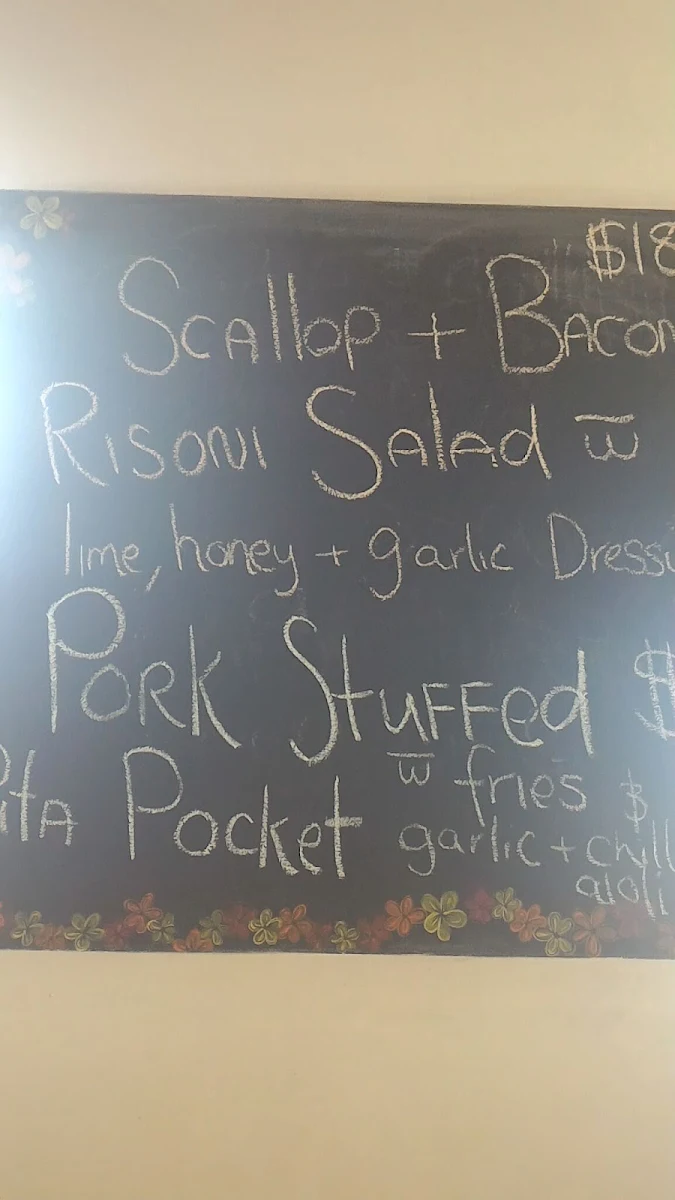 $18
Scallop + Bacon
Risoni Salad w̅
lime, honey + garlic Dressi
Pork Stuffed $
Pita Pocket w̅ fries $
garlic + chill
aioli